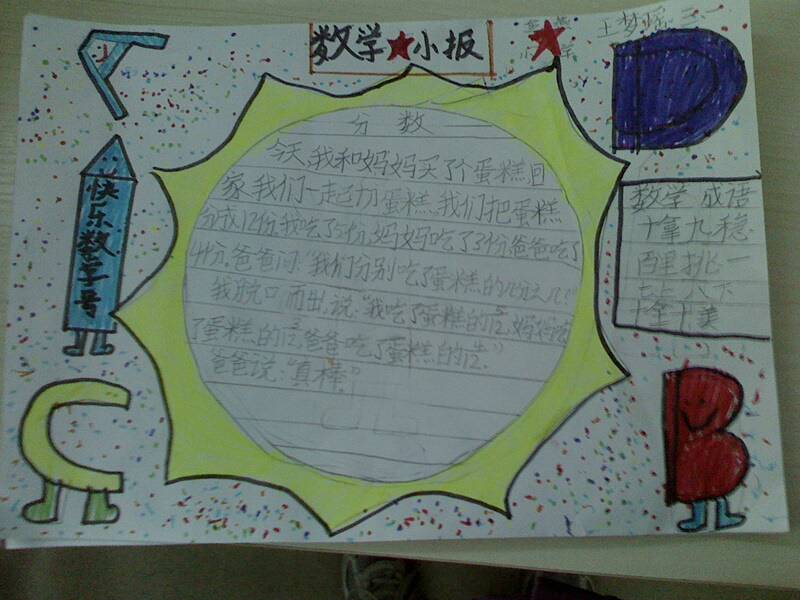 数学★小报
王梦瑶 三.一
A
D
快乐数学号
分数
今天,我和妈妈买了个蛋糕回
家,我们一起切蛋糕,我们把蛋糕
分成12份,我吃了5份,妈妈吃了3份,爸爸吃了
4份,爸爸问:“我们分别吃了蛋糕的几分之几?”
我脱口而出,说:“我吃了蛋糕的5/12,妈妈吃
了蛋糕的3/12,爸爸吃了蛋糕的4/12。”
爸爸说:“真棒。”
数学 成语
十拿九稳
百里挑一
七上八下
十全十美
C
B